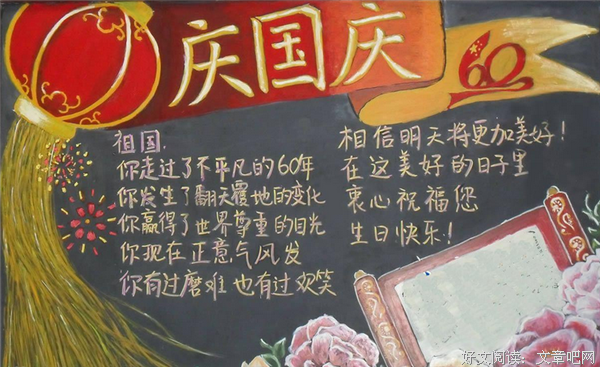 庆国庆
60
祖国:
你走过了不平凡的60年
你发生了翻天覆地的变化
你赢得了世界尊重的目光
你现在正意气风发
你有过磨难也有过欢笑
相信明天将更加美好!
在这美好的日子里
衷心祝福您
生日快乐!
好文阅读:文章吧网